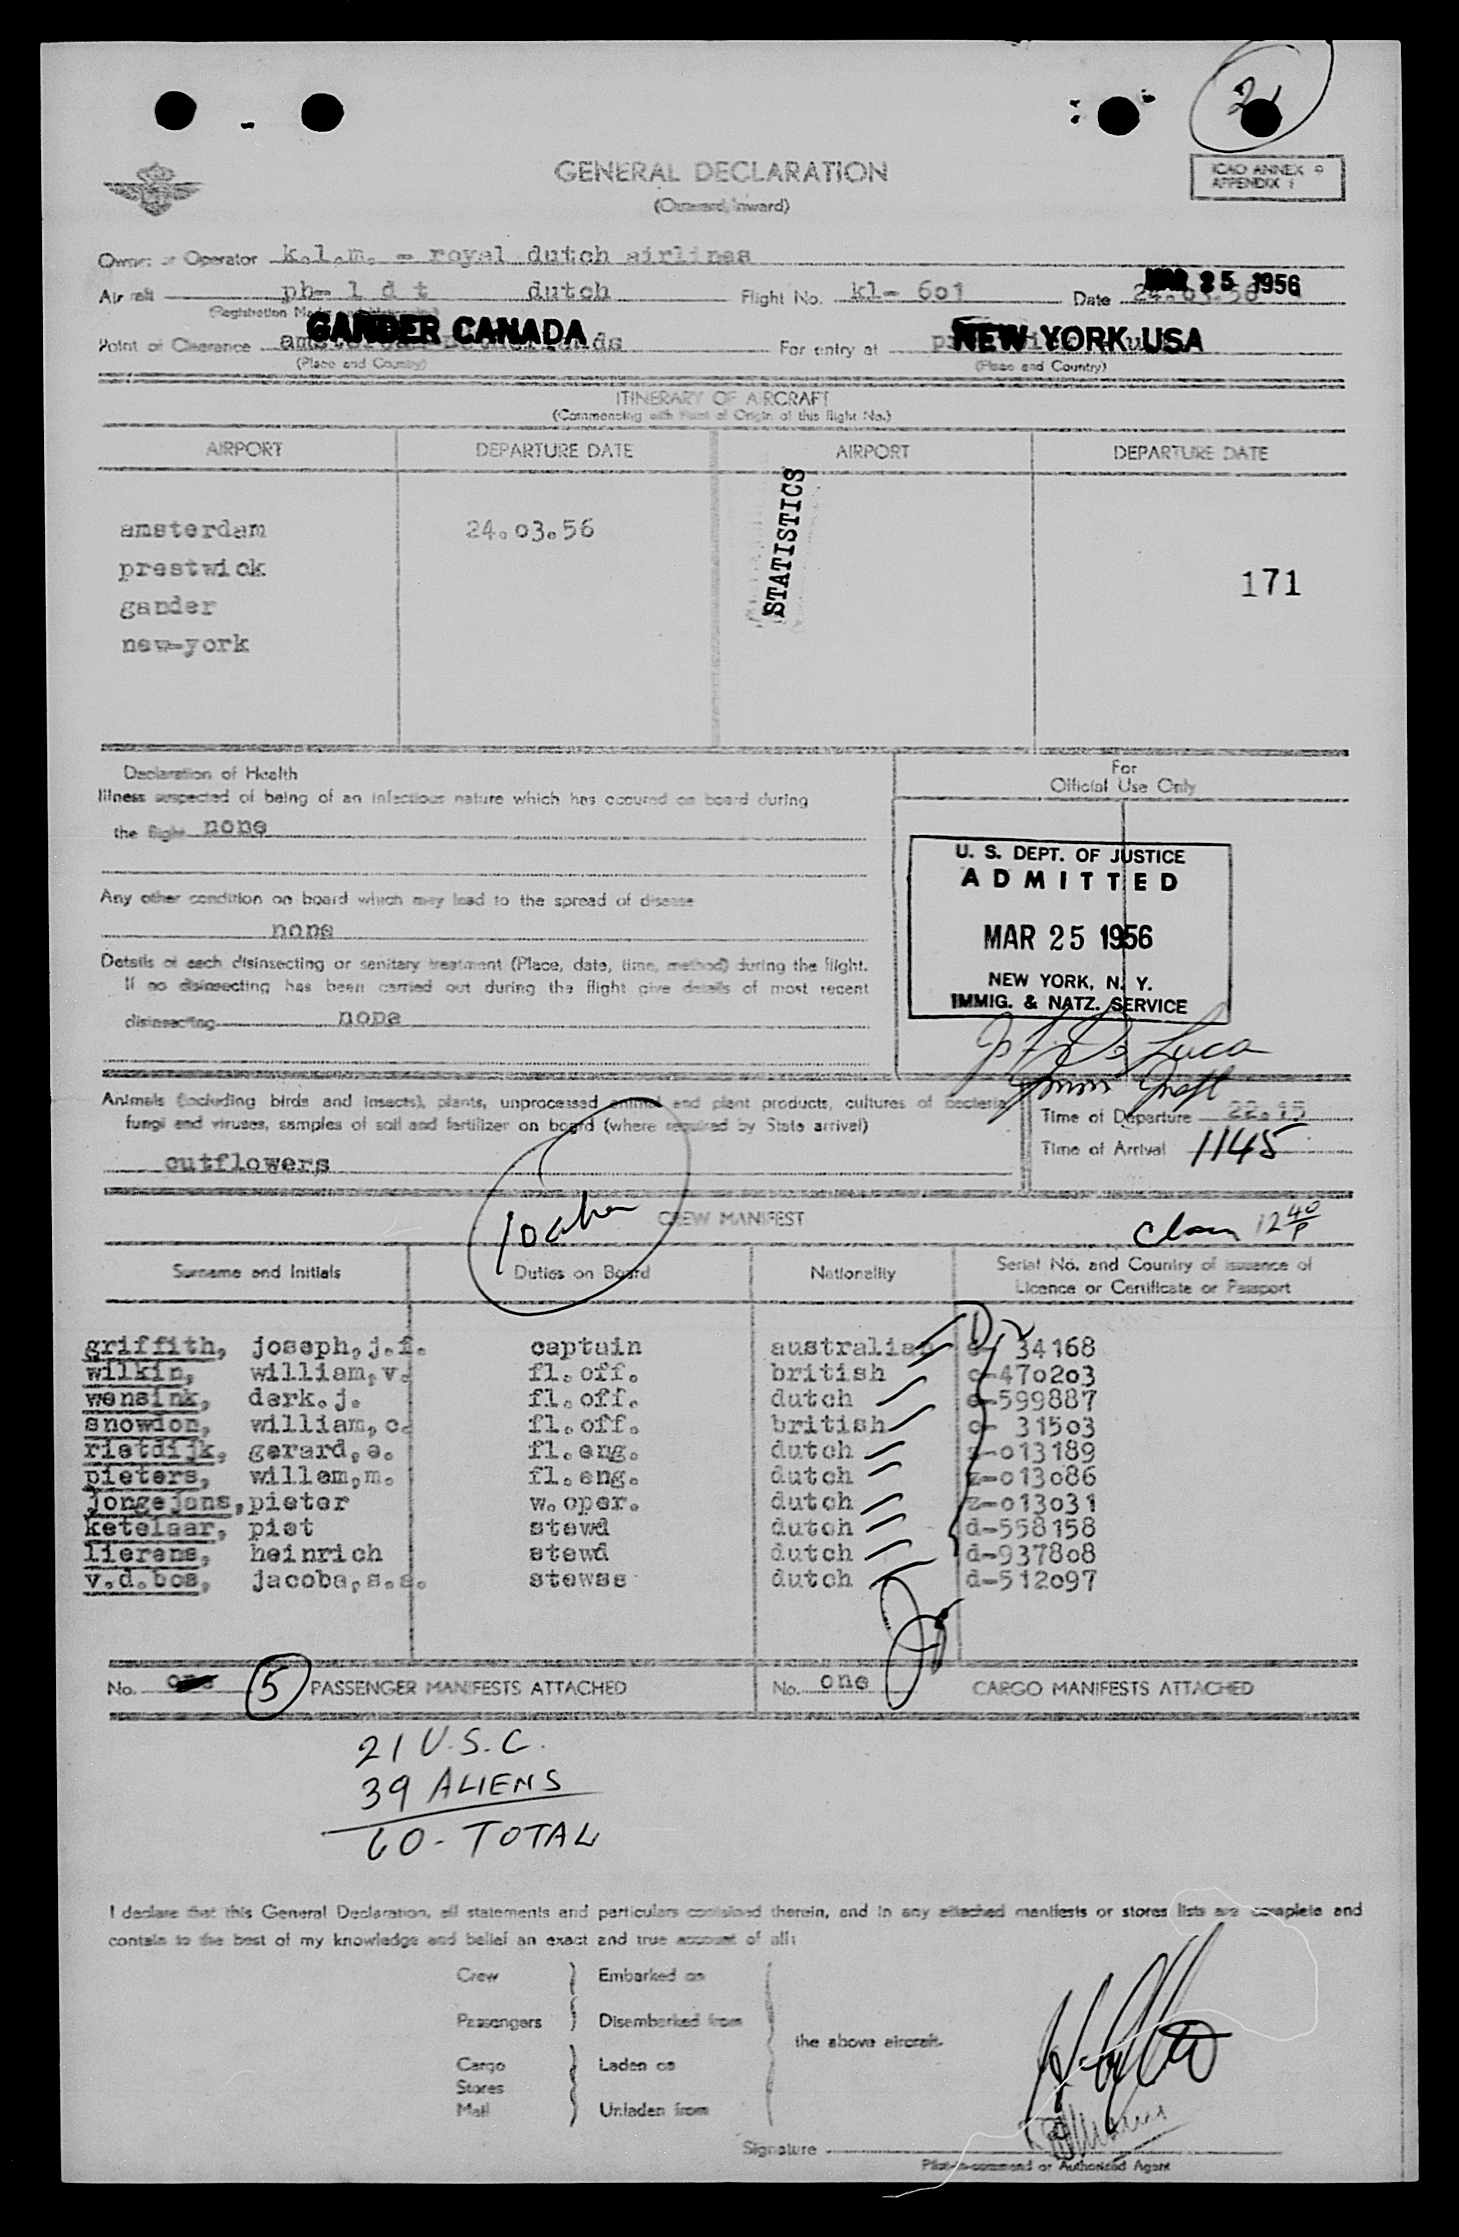 21
GENERAL DECLARATION
ICAO ANNEX 9
APPENDIX 1
(Outward, Inward)
Owner or Operator k.l.m. - royal dutch airlines
Aircraft ph- l d t dutch Flight No. kl- 601 Date 24.03.56 MAR 25 1956
(Registration Marks and Nationality)
Point of Clearance GANDER CANADA For entry at NEW YORK USA
(Place and Country) (Place and Country)
ITINERARY OF AIRCRAFT
(Commencing with Point of Origin of this flight No.)
AIRPORT DEPARTURE DATE AIRPORT DEPARTURE DATE
STATISTICS
amsterdam 24.03.56
prestwick
171
gander
new-york
Declaration of Health
For
Official Use Only
Illness suspected of being of an infectious nature which has occured on board during
the flight none
U. S. DEPT. OF JUSTICE
ADMITTED
MAR 25 1956
NEW YORK, N. Y.
IMMIG. & NATZ. SERVICE
Any other condition on board which may lead to the spread of disease
none
Details of each disinsecting or sanitary treatment (Place, date, time, method) during the flight.
If no disinsecting has been carried out during the flight give details of most recent
disinsecting none
De Luca
Imm Inspt
Animals (including birds and insects), plants, unprocessed animal and plant products, cultures of bacteria,
fungi and viruses, samples of soil and fertilizer on board (where required by State arrival)
Time of Departure 22.15
Time of Arrival 1145
cutflowers
CREW MANIFEST
Surname and Initials Duties on Board Nationality Serial No. and Country of issuance of
Licence or Certificate or Passport
griffith, joseph,j.f. captain australian 34168
wilkin, william,v. fl.off. british c-470203
wensink, derk.j. fl.off. dutch 599887
snowdon, william,c. fl.off. british c- 31503
rietdijk, gerard,e. fl.eng. dutch z-013189
pieters, willem,m. fl.eng. dutch z-013086
jongejans,pieter w.oper. dutch z-013031
ketelaar, piet stewd dutch d-558158
lierens, heinrich stewd dutch d-937808
v.d.bos, jacoba,s.s. stewss dutch d-512097
No. one 5 PASSENGER MANIFESTS ATTACHED No. one CARGO MANIFESTS ATTACHED
21 U.S.C.
39 ALIENS
60 - TOTAL
I declare that this General Declaration, all statements and particulars contained therein, and in any attached manifests or stores lists are complete and
contain to the best of my knowledge and belief an exact and true account of all:
Crew Embarked on
Passengers Disembarked from
the above aircraft.
Cargo Laden on
Stores
Mail Unladen from
Signature
Pilot-in-command or Authorised Agent